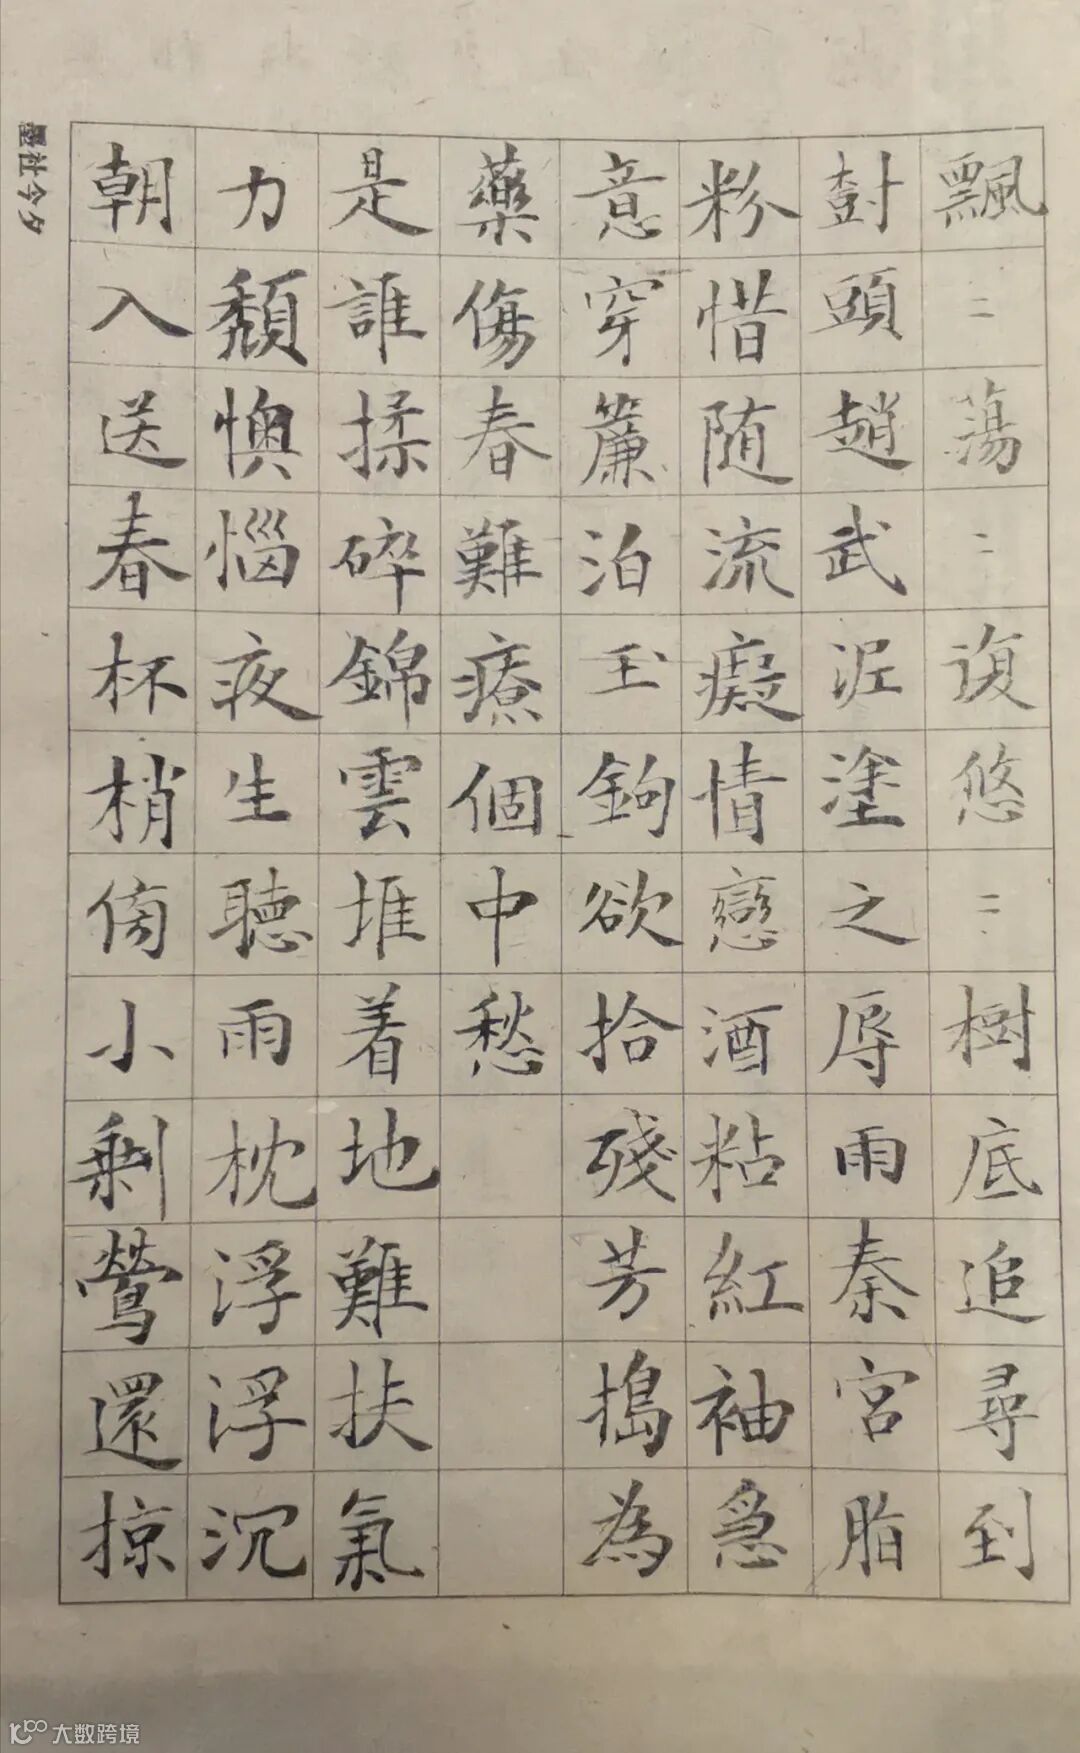 飄二蕩二復悠二樹底追尋到
尌頭趙武泥塗之辱雨秦宮脂
粉惜随流癡情戀酒粘紅袖急
意穿簾泊玉鉤欲拾殘芳搗為
藥傷春難療個中愁
是誰揉碎錦雲堆着地難扶氣
力頹懊惱夜生聽雨枕浮浮沉
朝入送春杯梢傍小剩鶯還掠
社今夕
大数跨境